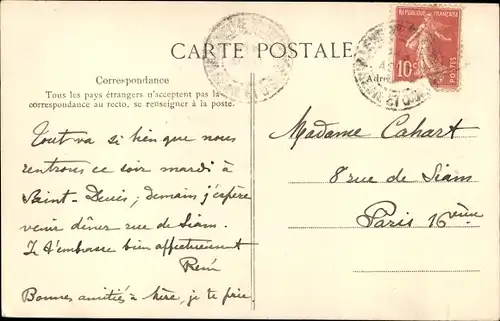 CARTE POSTALE
RÉPUBLIQUE FRANÇAISE
10c
POSTES
Correspondance
Tous les pays étrangers n'acceptent pas la
correspondance au recto, se renseigner à la poste.
Tout va si bien que nous
rentrons ce soir mardi à
Saint-Denis; demain j'espère
venir dîner rue de Siam.
Je t'embrasse bien affectueusement
René
Bonnes amitiés à Mère, je te prie.
Madame Cahart
8 rue de Siam
Paris 16ème